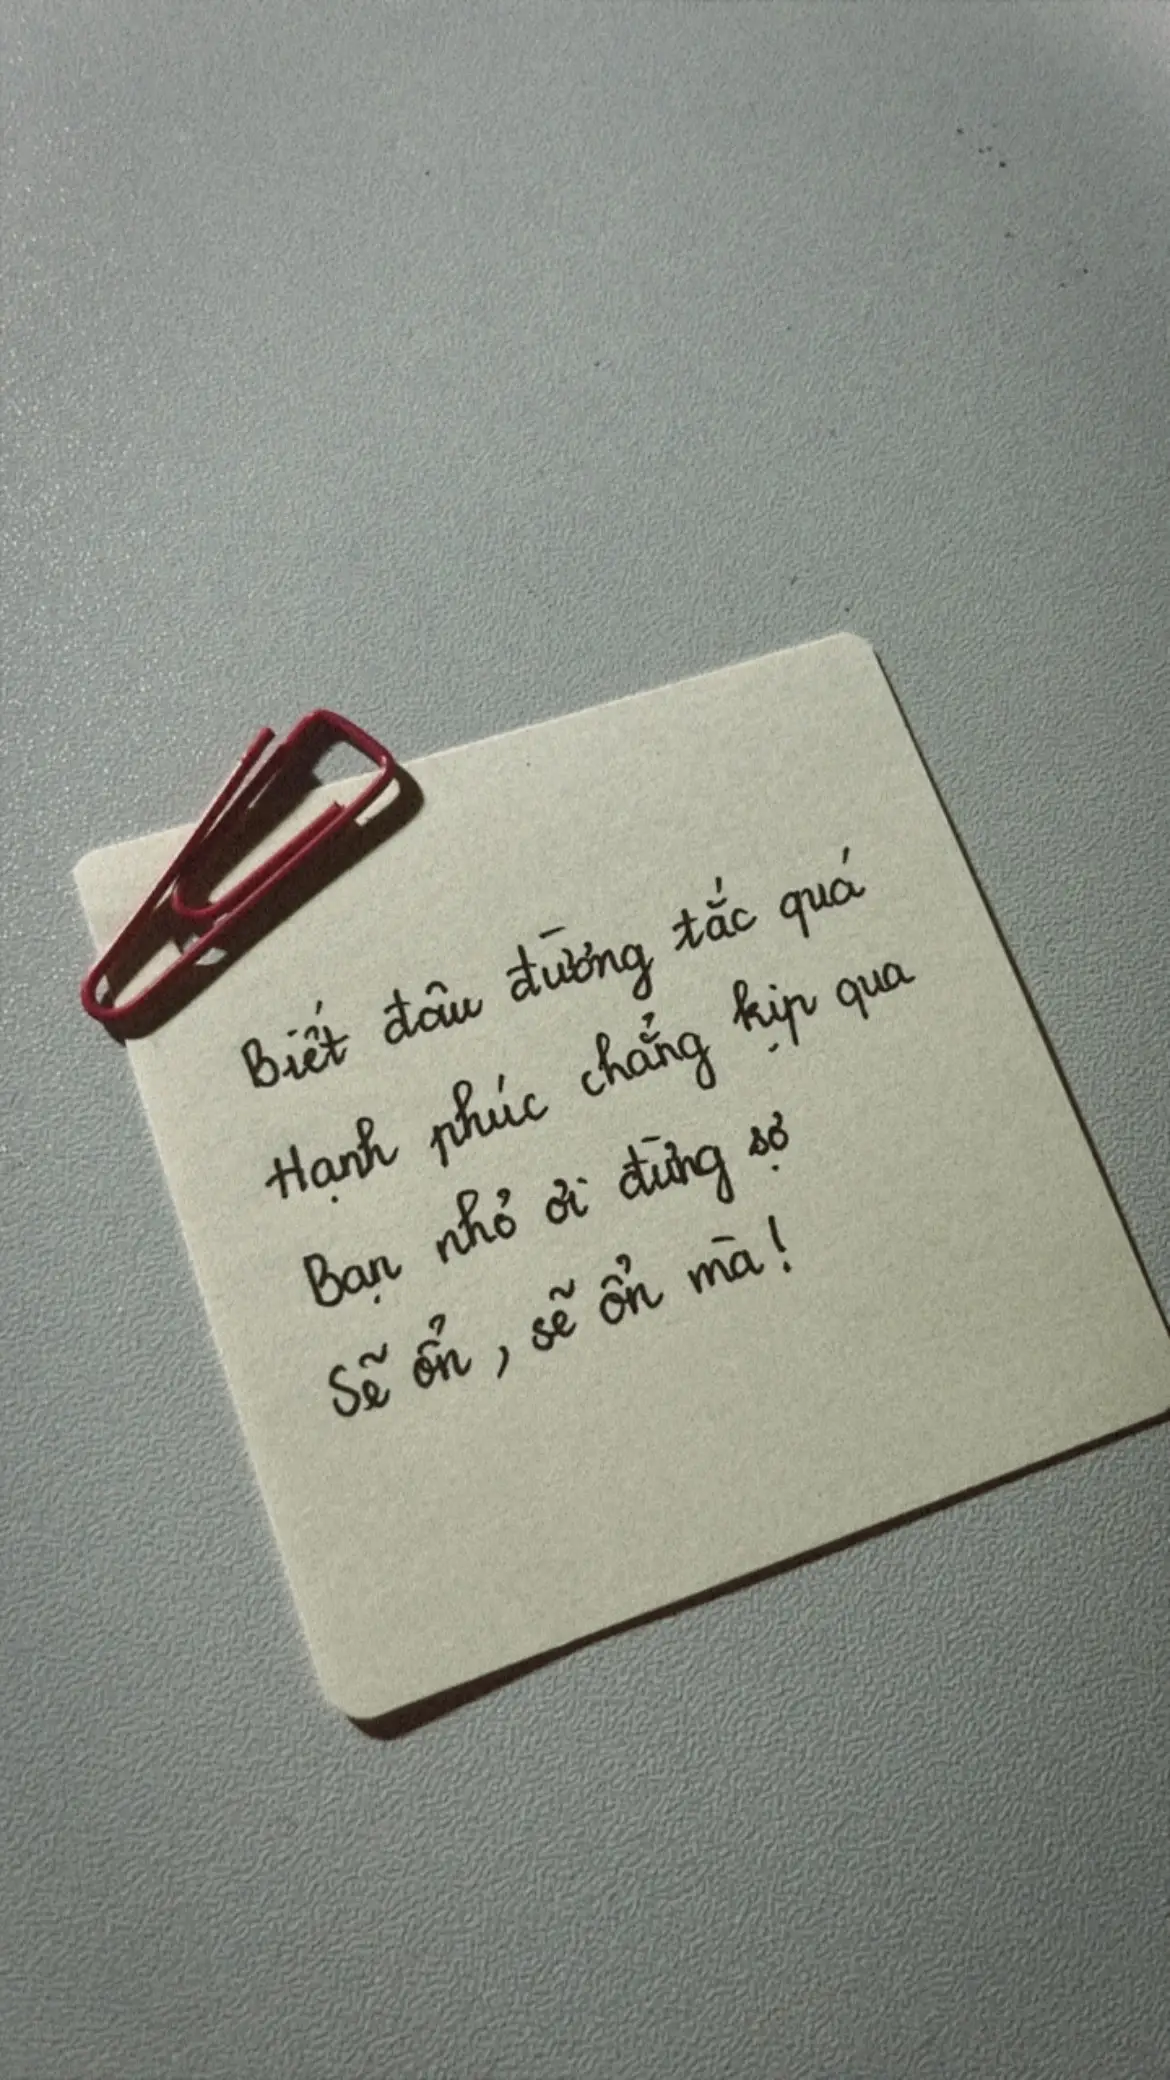 Biết đâu đường tắc quá
Hạnh phúc chẳng kịp qua
Bạn nhỏ ơi đừng sợ
Sẽ ổn, sẽ ổn mà!